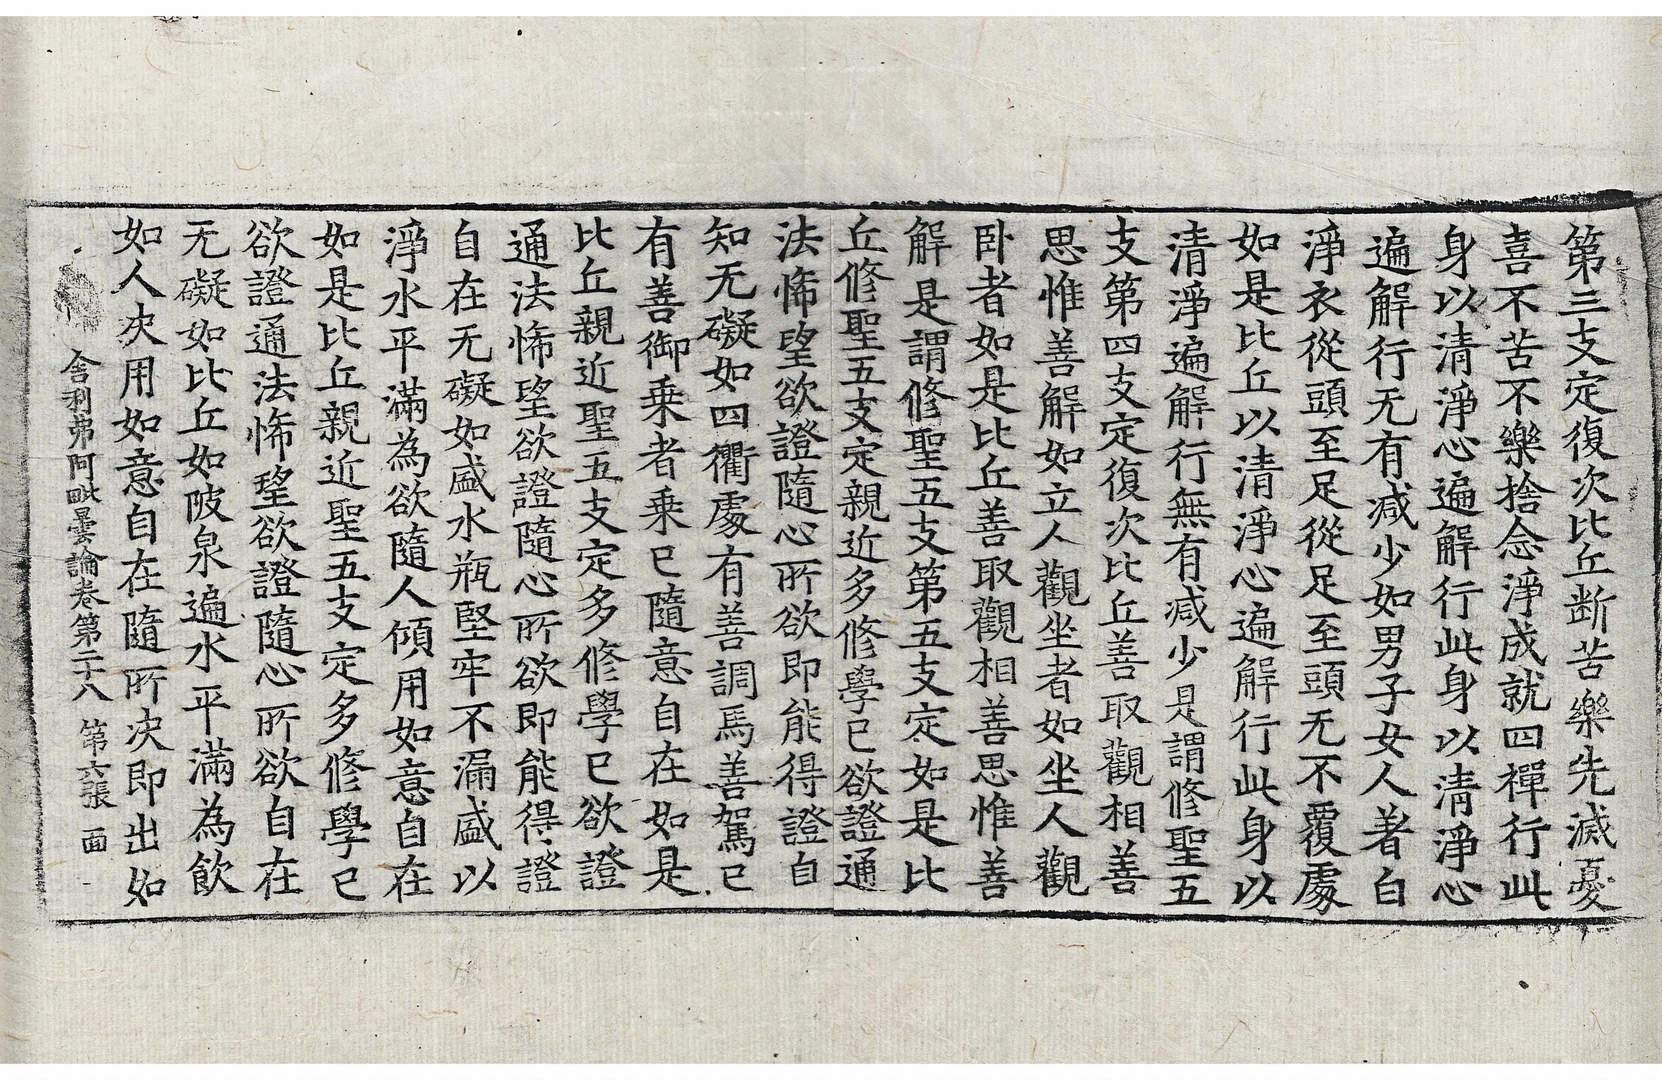 第三支定復次比丘断苦樂先滅憂
喜不苦不樂捨念淨成就四禪行此
身以清淨心遍解行此身以清淨心
遍解行无有減少如男子女人著白
淨衣從頭至足從足至頭无不覆處
如是比丘以清淨心遍解行此身以
清淨遍解行無有減少是謂修聖五
支第四支定復次比丘善取觀相善
思惟善解如立人觀坐者如坐人觀
卧者如是比丘善取觀相善思惟善
解是謂修聖五支第五支定如是比
丘修聖五支定親近多修學已欲證通
法悕望欲證隨心所欲即能得證自
知无礙如四衢處有善調馬善駕已
有善御乗者乗已隨意自在如是
比丘親近聖五支定多修學已欲證
通法悕望欲證隨心所欲即能得證
自在无礙如盛水瓶堅牢不漏盛以
淨水平滿為欲隨人傾用如意自在
如是比丘親近聖五支定多修學已
欲證通法悕望欲證隨心所欲自在
无礙如比丘如陂泉遍水平滿為飲
如人决用如意自在隨所决即出如
舍利弗阿毗曇論卷第二十八 第六張 面